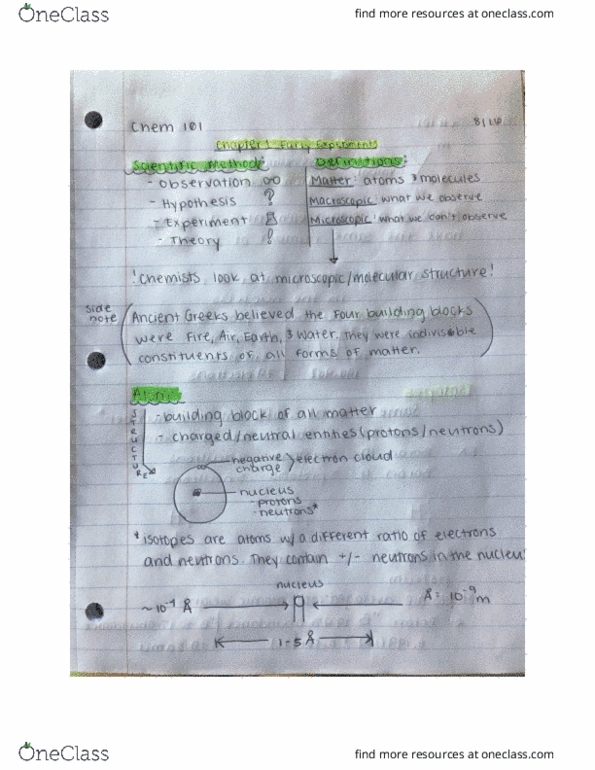 OneClass
find more resources at oneclass.com
Chem 101
8/16
Chapter 1: Early Experiments
Scientific Method:
Definitions:
- Observation
- Hypothesis ?
- Experiment
- Theory !
Matter: atoms & molecules
Macroscopic: what we observe
Microscopic: what we can't observe
! Chemists look at microscopic/molecular structure!
side note
Ancient Greeks believed the four building blocks
were Fire, Air, Earth, & Water. They were indivisible
constituents of all forms of matter.
Atom:
STRUCTURE
- building block of all matter
- charged/neutral entities (protons/neutrons)
negative charge > electron cloud
nucleus
- protons
- neutrons*
* isotopes are atoms w/ a different ratio of electrons
and neutrons. They contain +/- neutrons in the nucleus!
nucleus
Å = 10⁻⁹ m
1-5 Å
OneClass
find more resources at oneclass.com